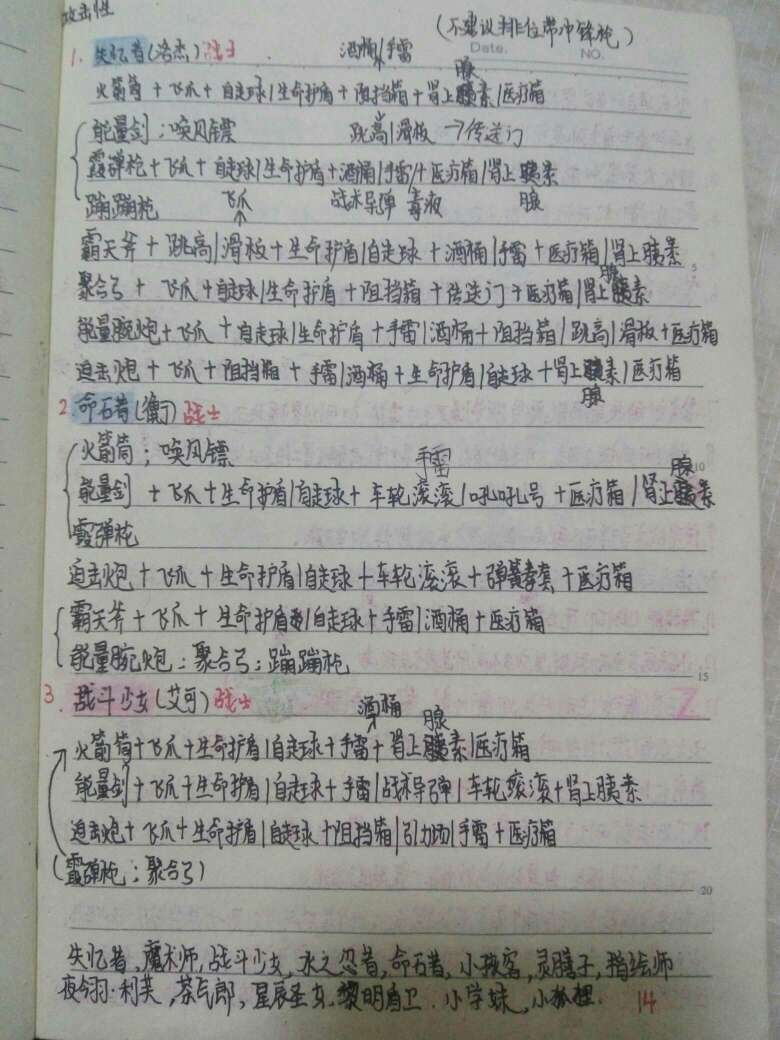 攻击性
(不建议排位带冲锋枪)
Date. NO.
1. 失忆者(洛杰)战士 酒桶/手雷
腺
火箭筒+飞爪+自走球|生命护盾+阻挡箱+肾上素|医疗箱
能量剑；唤风镖 跳高|滑板→传送门
霰弹枪+飞爪+自走球|生命护盾+酒桶|手雷+医疗箱|肾上胰素
蹦蹦枪 飞爪 战术导弹 毒液 腺
霸天斧+跳高|滑板+生命护盾|自走球+酒桶|手雷+医疗箱|肾上胰素
腺
聚合弓+飞爪+自走球|生命护盾+阻挡箱+传送门+医疗箱|肾上胰素
能量腕炮+飞爪+自走球|生命护盾+手雷|酒桶+阻挡箱|跳高|滑板+医疗箱
迫击炮+飞爪+阻挡箱+手雷|酒桶+生命护盾|自走球+肾上素|医疗箱
腺
2. 命石者(衡)战士
火箭筒；唤风镖 手雷 腺
能量剑+飞爪+生命护盾|自走球+车轮滚滚|吼吼号+医疗箱|肾上素
霰弹枪
迫击炮+飞爪+生命护盾|自走球+车轮滚滚+弹簧拳套+医疗箱
霸天斧+飞爪+生命护盾|自走球+手雷|酒桶+医疗箱
能量腕炮；聚合弓；蹦蹦枪
3. 战斗少女(艾可)战士 酒桶 腺
火箭筒+飞爪+生命护盾|自走球+手雷+肾上素|医疗箱
能量剑+飞爪+生命护盾|自走球+手雷|战术导弹|车轮滚滚+肾上胰素
迫击炮+飞爪+生命护盾|自走球+阻挡箱|引力场|手雷+医疗箱
(霰弹枪；聚合弓)
失忆者,魔术师,战斗少女,水之忍者,命石者,小孩窖,灵膳子,指绘师
夜翎·利芙,茶气郎,星辰圣女,黎明盾卫.小学妹,小狐狸. 14
5
10
15
20